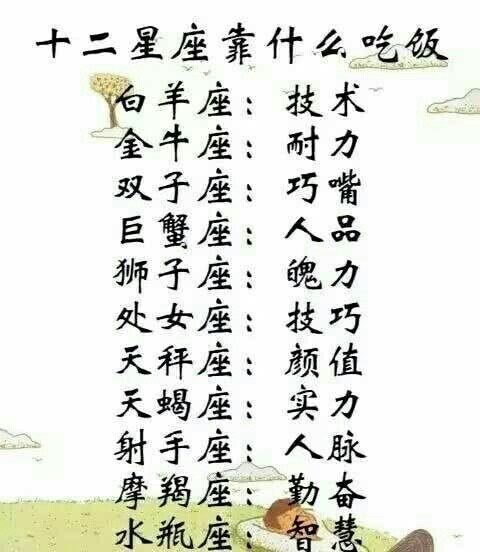 十二星座靠什么吃饭
白羊座：技术
金牛座：耐力
双子座：巧嘴
巨蟹座：人品
狮子座：魄力
处女座：技巧
天秤座：颜值
天蝎座：实力
射手座：人脉
摩羯座：勤奋
水瓶座：智慧